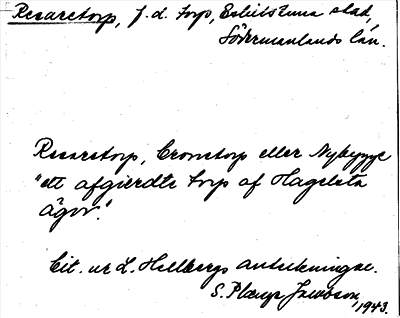 Resaretorp, f.d. torp, Eskilstuna stad,
Södermanlands län.
Resaretorp, Cronetorp eller Nybygge
"ett afgierdte torp af Hagelsta
ägor."
Cit. ur L. Hellbergs anteckningar.
S. Plæng Jacobson, 1943.